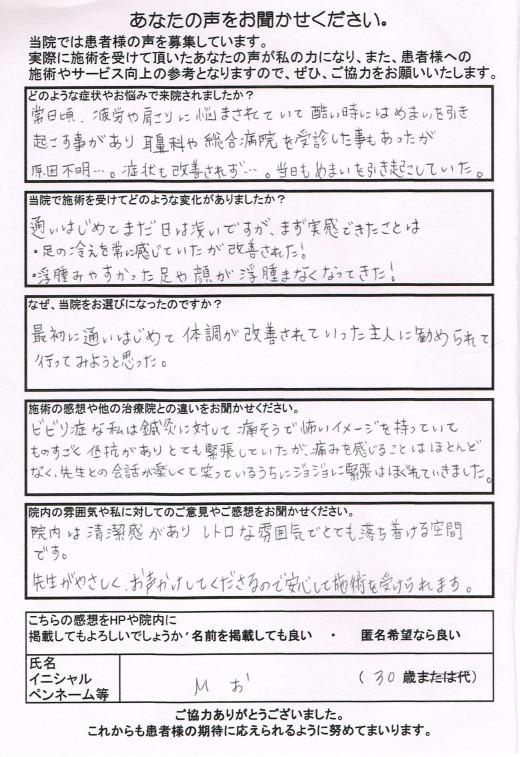 あなたの声をお聞かせください。
当院では患者様の声を募集しています。
実際に施術を受けて頂いたあなたの声が私の力になり、また、患者様への
施術やサービス向上の参考となりますので、ぜひ、ご協力をお願いいたします。
どのような症状やお悩みで来院されましたか?
常日頃、疲労や肩こりに悩まされていて酷い時にはめまいを引き
起こす事があり耳鼻科や総合病院を受診した事もあったが
原因不明…。症状も改善されず…。当日もめまいを引き起こしていた。
当院で施術を受けてどのような変化がありましたか?
通いはじめてまだ日は浅いですが、まず実感できたことは
・足の冷えを常に感じていたが改善された!
・浮腫みやすかった足や顔が浮腫まなくなってきた!
なぜ、当院をお選びになったのですか?
最初に通いはじめて体調が改善されていった主人に勧められて
行ってみようと思った。
施術の感想や他の治療院との違いをお聞かせください。
ビビリ症な私は鍼灸に対して痛そうで怖いイメージを持っていて
ものすごく低抗がありとても緊張していたが、痛みを感じることはほとんど
なく、先生との会話が楽しくて笑っているうちにジョジョに緊張はほぐれていきました。
院内の雰囲気や私に対してのご意見やご感想をお聞かせください。
院内は清潔感がありレトロな雰囲気でとても落ち着ける空間
です。
先生がやさしく、お声かけしてくださるので安心して施術を受けられます。
こちらの感想をHPや院内に
掲載してもよろしいでしょうか 名前を掲載しても良い ・ 匿名希望なら良い
氏名
イニシャル
ペンネーム等
M お (30歳または代)
ご協力ありがとうございました。
これからも患者様の期待に応えられるように努めてまいります。